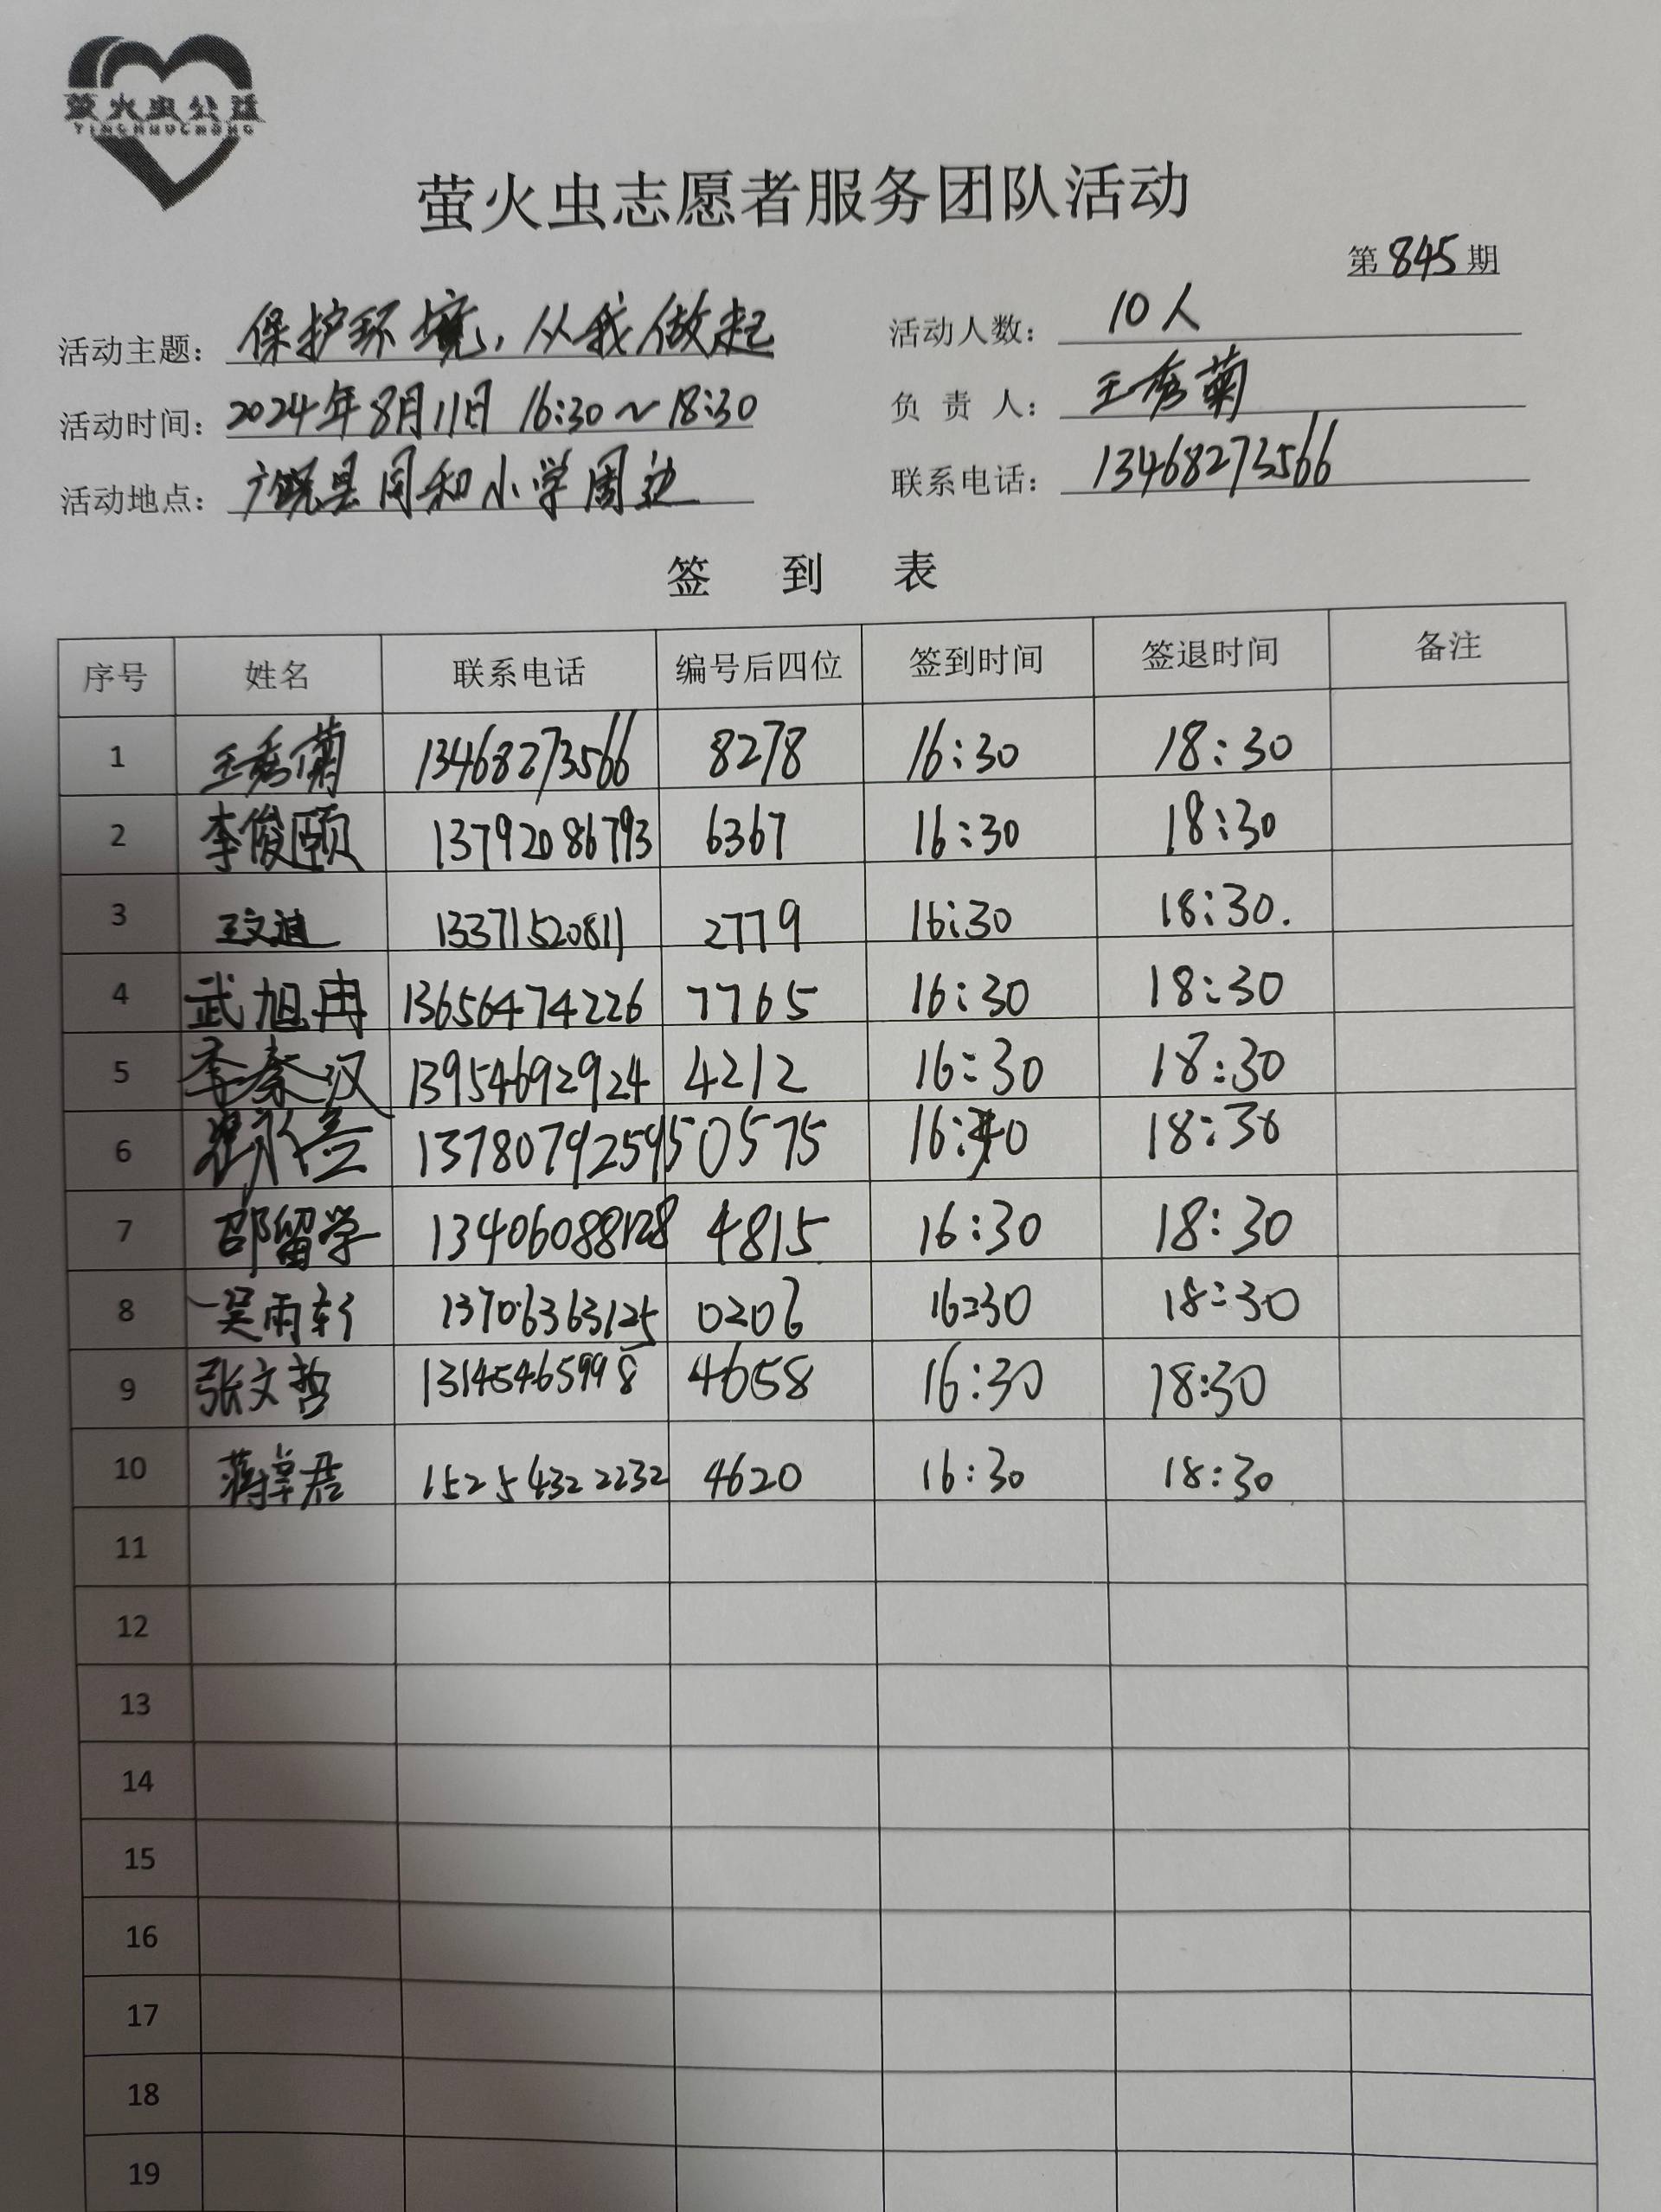 萤火虫公益
YINGHUOCHONG
萤火虫志愿者服务团队活动
第845期
活动主题: 保护环境,从我做起 活动人数: 10人
活动时间: 2024年8月11日 16:30~18:30 负责人: 王秀菊
活动地点: 广饶县同和小学周边 联系电话: 13468273566
签到表
序号 姓名 联系电话 编号后四位 签到时间 签退时间 备注
1 王秀菊 13468273566 8278 16:30 18:30
2 李俊颐 13792086793 6367 16:30 18:30
3 王文迪 13371520811 2779 16:30 18:30.
4 武旭冉 13656474226 7765 16:30 18:30
5 李秦汉 13954692924 4212 16:30 18:30
6 13780792595 0575 18:30
7 邵留学 13406088128 4815 16:30 18:30
8 吴雨轩 13706363125 0206 16:30 18:30
9 张文哲 13145465998 4658 16:30 18:30
10 15254322232 4620 16:30 18:30
11
12
13
14
15
16
17
18
19